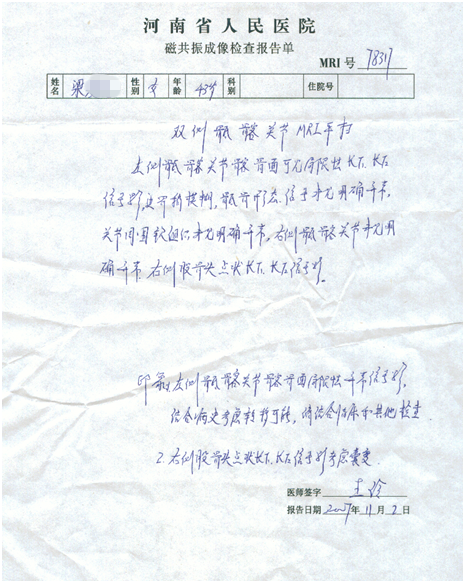 河南省人民医院
磁共振成像检查报告单
MRI号 78317
姓名 梁 性别 女 年龄 43岁 科别 住院号
双侧骶髂关节MRI平扫
左侧骶髂关节髂骨面可见局限性长T1、长T2
信号影,边界模糊,骶骨形态、信号未见明确异常,
关节周围软组织未见明确异常。右侧骶髂关节未见明
确异常。右侧股骨头点状长T1、长T2信号影。
印象:1.左侧骶髂关节髂骨面局限性异常信号影,
结合病史考虑转移可能,请结合临床和其他检查
2.右侧股骨头点状长T1、长T2信号影考虑囊变
医师签字
报告日期 2007年11月2日